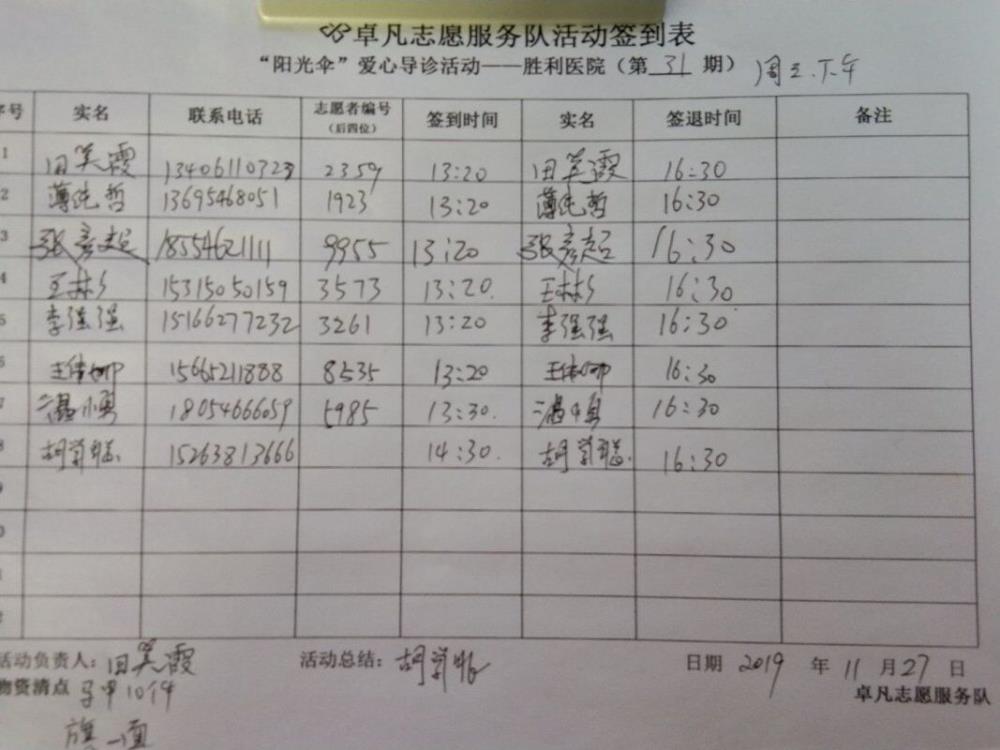 卓凡志愿服务队活动签到表
“阳光伞”爱心导诊活动——胜利医院（第 31 期） 周三.下午
序号 实名 联系电话 志愿者编号（后四位） 签到时间 实名 签退时间 备注
1 田笑霞 13406110323 2359 13:20 田笑霞 16:30
2 薄纯哲 13695468051 1923 13:20 薄纯哲 16:30
3 张彦超 18554621111 9955 13:20 张彦超 16:30
4 王林乡 15315050159 3573 13:20. 王林乡 16:30
5 李强强 15166277232 3261 13:20 李强强 16:30
6 王 15665211888 8535 13:20 王 16:30
7 温小勇 18054666059 5985 13:30. 温小勇 16:30
8 胡学聪 15263813666 14:30. 胡学聪. 16:30
9
活动负责人：田笑霞 活动总结：胡学聪 日期 2019 年 11 月 27 日
物资清点 马甲10件 卓凡志愿服务队
旗一面